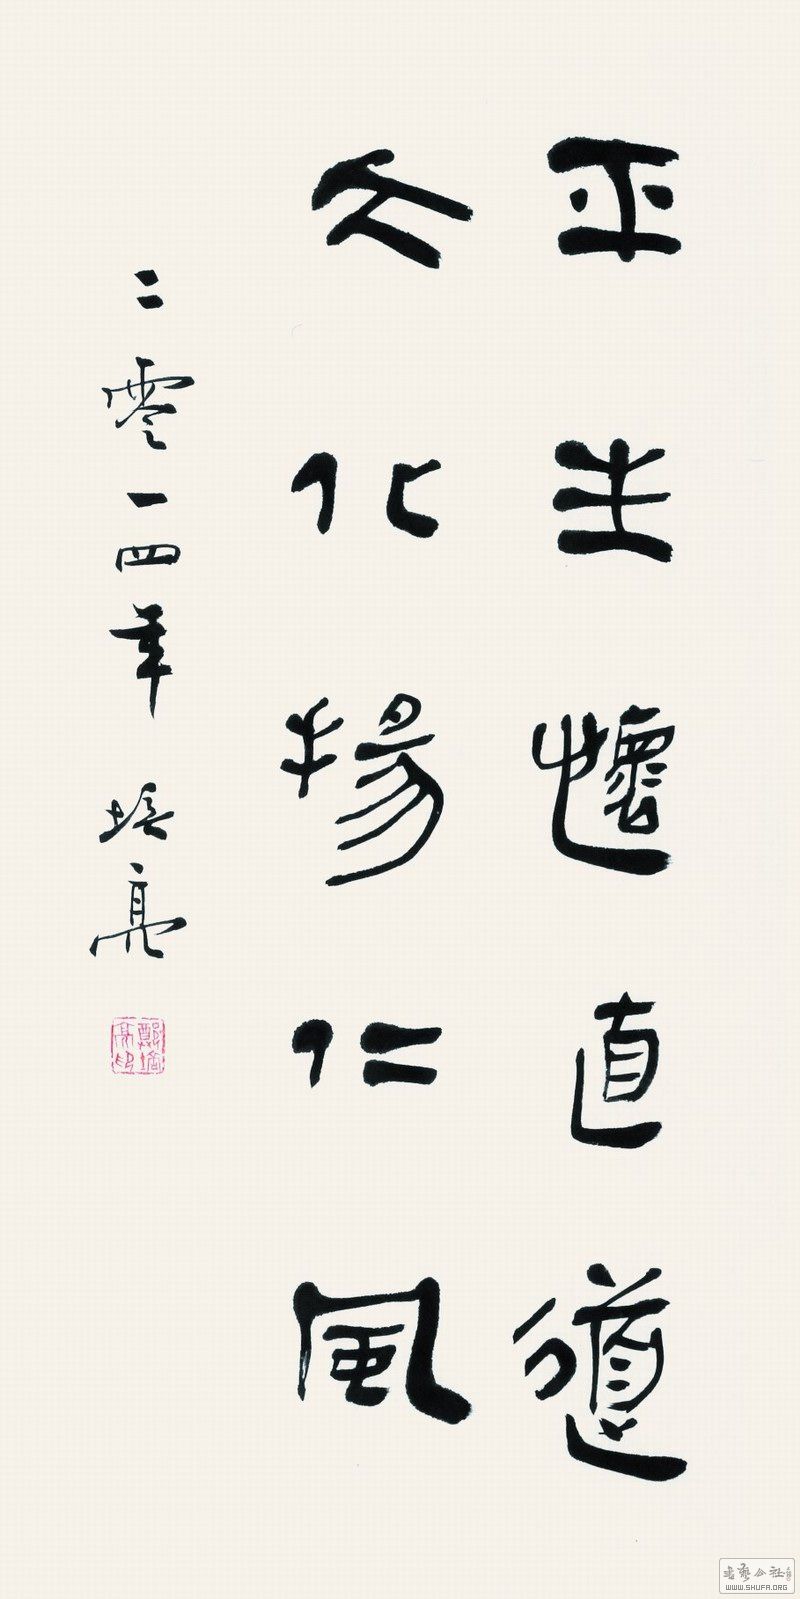 平生懷直道
大化揚仁風
二零一四年 培亮
鄭培亮印
書藝公社
WWW.SHUFA.ORG